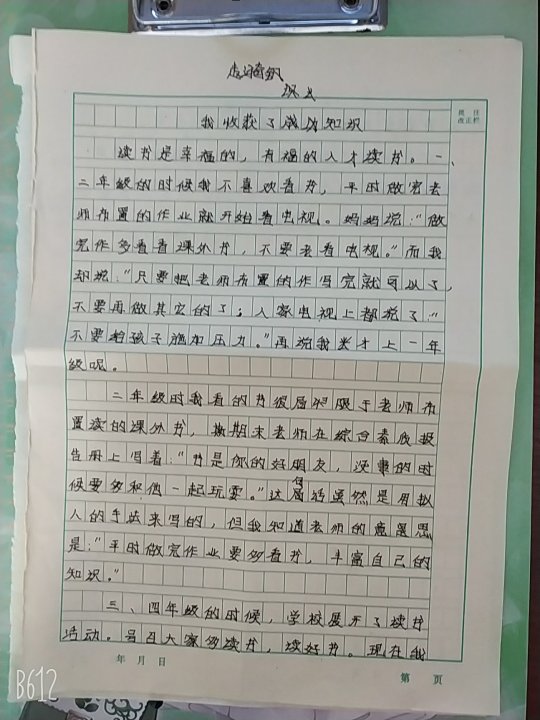 我收获了成功知识
批 注
改正栏
读书是幸福的，有福的人才读书。一、
二年级的时候我不喜欢看书，平时做完老
师布置的作业就开始看电视。妈妈说：“做
完作多看看课外书，不要老看电视。”而我
却说：“只要把老师布置的作写完就可以了，
不要再做其它的了；人家电视上都说了“
不要给孩子施加压力。”再说我类才上一年
级呢。
二年级时我看的书很局限于老师布
置读的课外书，期末老师在综合素质报
告册上写着：“书是你的好朋友，没事的时
候要多和他一起玩耍。”这句话虽然是用拟
人的手法来写的，但我知道老师的意思
是：“平时做完作业要多看书，丰富自己的
知识。”
三、四年级的时候，学校展开了读书
活动。号召大家多读书，读好书。现在我
年 月 日
第 页
B612